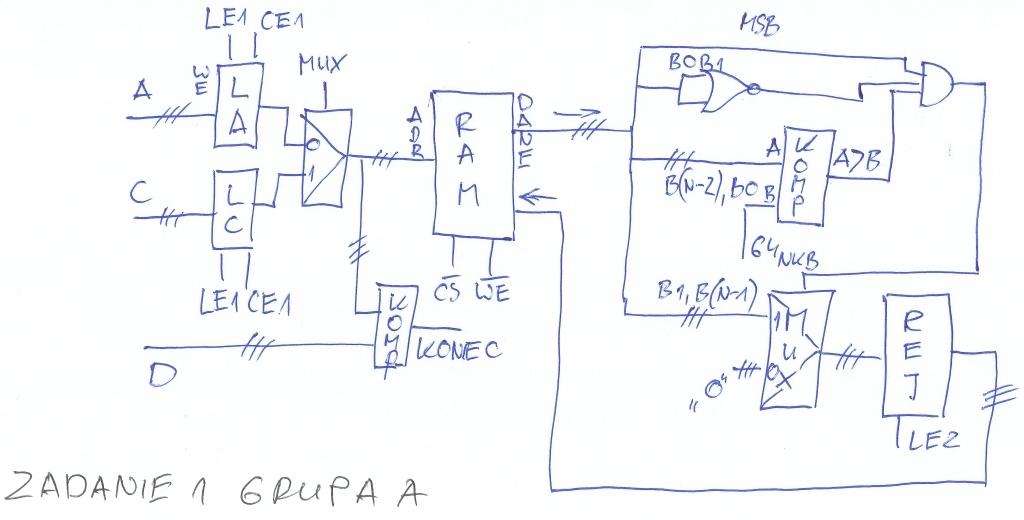 LE1 CE1
MSB
A
WE
LA
MUX
0
1
C
LC
LE1 CE1
ADR
RAM
DANE
CS WE
D
KOMP
KONEC
B0B1
A
B
KOMP
A>B
B(N-2), B0
64NKB
B1, B(N-1)
1
MUX
0
„0"
REJ
LE2
ZADANIE 1 GRUPA A